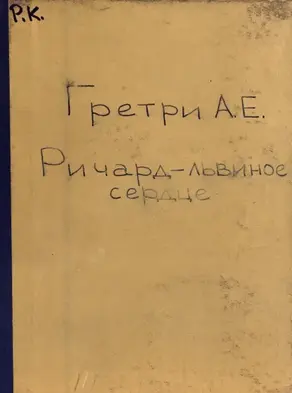 Р.К.
Гретри А.Е.
Ричард-львиное
сердце